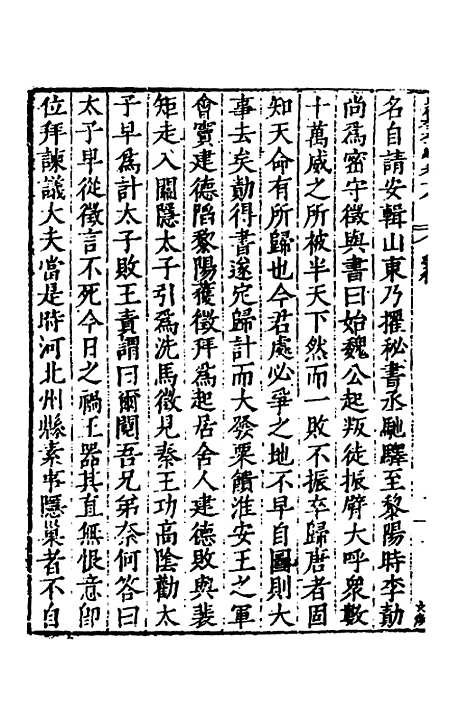 名自請安輯山東乃擢秘書丞馳驛至黎陽時李勣
尚爲密守徵與書曰始魏公起叛徒振臂大呼衆數
十萬威之所被半天下然而一敗不振卒歸唐者固
知天命有所歸也今君處必爭之地不早自圖則大
事去矣勣得書遂定歸計而大發粟饋淮安王之軍
會竇建德陷黎陽獲徵拜爲起居舍人建德敗與裴
矩走入關隱太子引爲洗馬徵見秦王功高陰勸太
子早爲計太子敗王責謂曰爾鬩吾兄弟奈何答曰
太子早從徵言不死今日之禍王器其直無恨意卽
位拜諫議大夫當是時河北州縣素事隱巢者不自